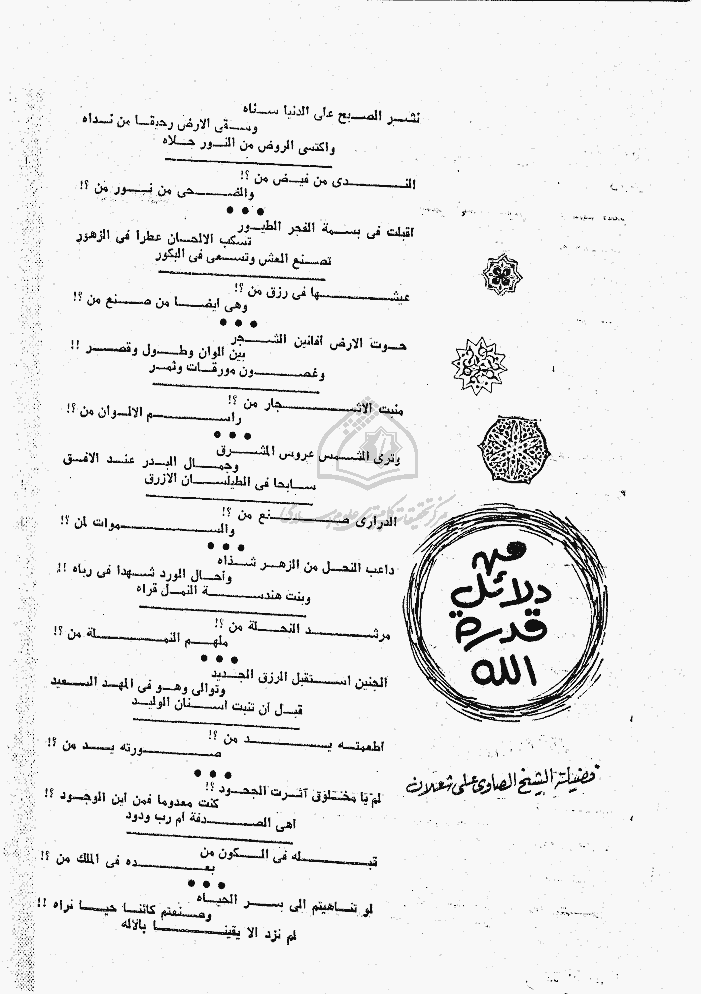 من
دلائل
قدرة
الله
فضيلة الشيخ الصاوى على شعلان
نشر الصبح على الدنيا سناه
وسقى الارض رحيقا من نداه
واكتسى الروض من النور حلاه
الندى من فيض من ؟!
والضحى من نور من ؟!
● ● ●
اقبلت فى بسمة الفجر الطيور
تسكب الالحان عطرا فى الزهور
تصنع العش وتسعى فى البكور
عيشها فى رزق من ؟!
وهى ايضا من صنع من ؟!
● ● ●
حوت الارض افانين الشجر
بين الوان وطول وقصر !!
وغصون مورقات وثمر
منبت الاشجار من ؟!
راسم الالوان من ؟!
● ● ●
وترى الشمس عروس المشرق
وجمال البدر عند الافق
سابحا فى الطيلسان الازرق
الدرارى صنع من ؟!
والسموات لمن ؟!
● ● ●
داعب النحل من الزهر شذاه
وأحال الورد شهدا فى رباه !!
وبنت هندسة النمل قراه
مرشد النحلة من ؟!
ملهم النملة من ؟!
● ● ●
الجنين استقبل الرزق الجديد
وتوالى وهو فى المهد السعيد
قبل أن تنبت اسنان الوليد
اطعمته يد من ؟!
صورته يد من ؟!
● ● ●
لم يا مخلوق آثرت الجحود ؟!
كنت معدوما فمن أين الوجود ؟!
أهى الصدفة أم رب ودود
قبله فى الكون من
بعده فى الملك من ؟!
● ● ●
لو تناهيتم الى سر الحياه
وصنعتم كائنا حيا نراه !!
لم نزد الا يقينا بالاله